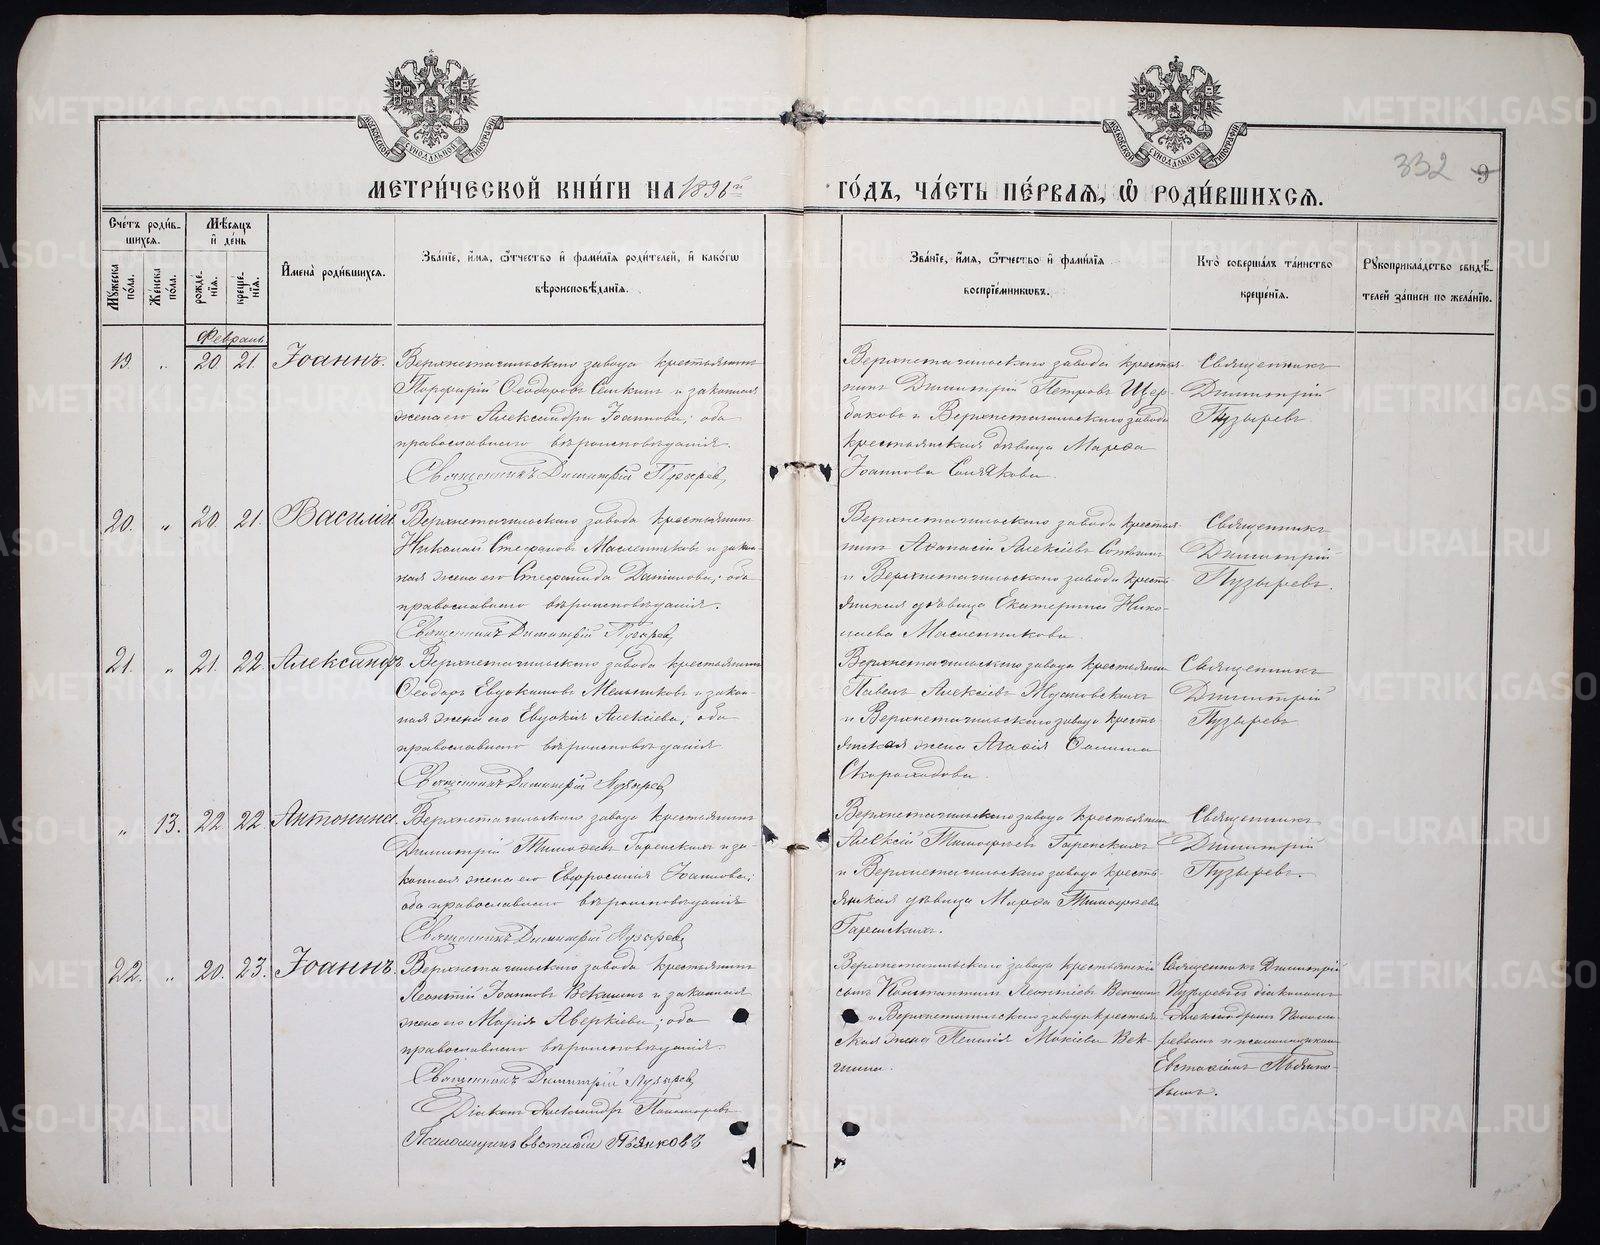 МЕТРИ́ЧЕСКОЙ КНИ́ГИ НА 1896й
ГО́ДЪ, ЧА́СТЬ ПЕ́РВАѦ, Ѡ҆ РОДИ́ВШИХСѦ.
332
9
Сче́тъ роди́в-
шихсѧ.
Мꙋ́жеска
по́ла.
Же́нска
по́ла.
Мѣ́сѧцъ
и҆ де́нь
рожде́-
нїѧ.
креще́-
нїѧ.
И҆мена̀ роди́вшихсѧ.
Зва́нїе, и҆́мѧ, ѻ҆́тчество и҆ фами́лїѧ роди́телей, и҆ како́гѡ
вѣроисповѣ́данїѧ.
Зва́нїе, и҆́мѧ, ѻ҆́тчество и҆ фами́лїѧ
воспрїе́мникѡвъ.
Кто̀ соверша́лъ та́инство
креще́нїѧ.
Рꙋкоприкла́дство свидѣ́-
телей за́писи по жела́нїю.
Февраль
19. " 20 21. Іоаннъ.
Верхнетагильскаго завода крестьянинъ
Порфирій Ѳеодоровъ Сенкинъ и законная
жена его Александра Іоаннова; оба
православнаго вѣроисповѣданія.
Священникъ Димитрій Пузыревъ
Верхнетагильскаго завода крестья-
нинъ Димитрій Петровъ Щер-
баковъ и Верхнетагильскаго завода
крестьянская дѣвица Марѳа
Іоаннова
Священникъ
Димитрій
Пузыревъ.
20. " 20. 21. Василій
Верхнетагильскаго завода крестьянинъ
Николай Стефановъ Масленниковъ и закон-
ная жена его Стефанида Даніилова; оба
православнаго вѣроисповѣданія.
Священникъ Димитрій Пузыревъ
Верхнетагильскаго завода крестья-
нинъ Аѳанасій Алексіевъ
и Верхнетагильскаго завода кресть-
янская дѣвица Екатерина Нико-
лаева Масленникова.
Священникъ
Димитрій
Пузыревъ.
21. " 21. 22. Александръ
Верхнетагильскаго завода крестьянинъ
Ѳеодоръ Евдокимовъ Мельниковъ и закон-
ная жена его Евдокія Алексіева; оба
православнаго вѣроисповѣданія
Священникъ Димитрій Пузыревъ
Верхнетагильскаго завода крестьянинъ
Павелъ Алексіевъ
и Верхнетагильскаго завода кресть-
янская жена Агаѳія Ѳомина
Скороходова.
Священникъ
Димитрій
Пузыревъ
" 13. 22. 22. Антонина.
Верхнетагильскаго завода крестьянинъ
Димитрій Тимоѳеевъ Гаренскихъ и за-
конная жена его Евфросинія Іоаннова;
оба православнаго вѣроисповѣданія
Священникъ Димитрій Пузыревъ
Верхнетагильскаго завода крестьянинъ
Алексій Тимоѳеевъ Гаренскихъ
и Верхнетагильскаго завода кресть-
янская дѣвица Марѳа Тимоѳеева
Гаренскихъ.
Священникъ
Димитрій
Пузыревъ.
22. " 20. 23. Іоаннъ.
Верхнетагильскаго завода крестьянинъ
Леонтій Іоанновъ Векшинъ и законная
жена его Марія Аверкіева; оба
православнаго вѣроисповѣданія.
Священникъ Димитрій Пузыревъ
Діаконъ Александръ Пономаревъ
Псаломщикъ Евстафій Пьянковъ
Верхнетагильскаго завода крестьянскій
сынъ Константинъ Леонтіевъ Векшинъ
и Верхнетагильскаго завода крестьян-
ская жена Мокіева Век-
шина.
Священникъ Димитрій
Пузыревъ съ діакономъ
Александромъ Понома-
ревымъ и псаломщикомъ
Евстафіемъ Пьянко-
вымъ.